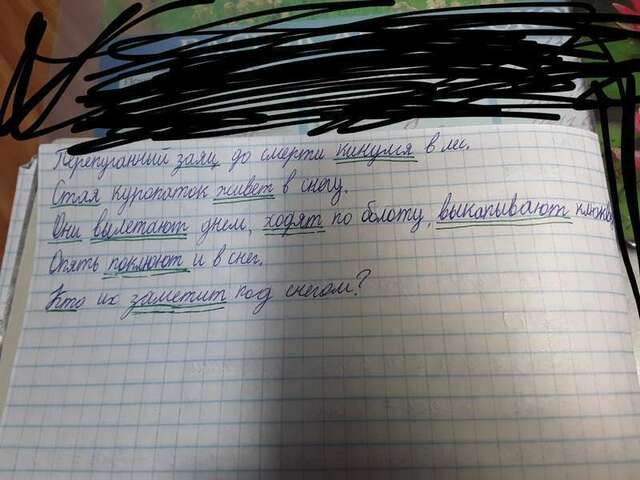 Перепуганный заяц до смерти кинулся в лес.
Стая куропаток живет в снегу.
Они вылетают днем, ходят по болоту, выкапывают клюкву
Опять поклюют и в снег.
Кто их заметит под снегом?